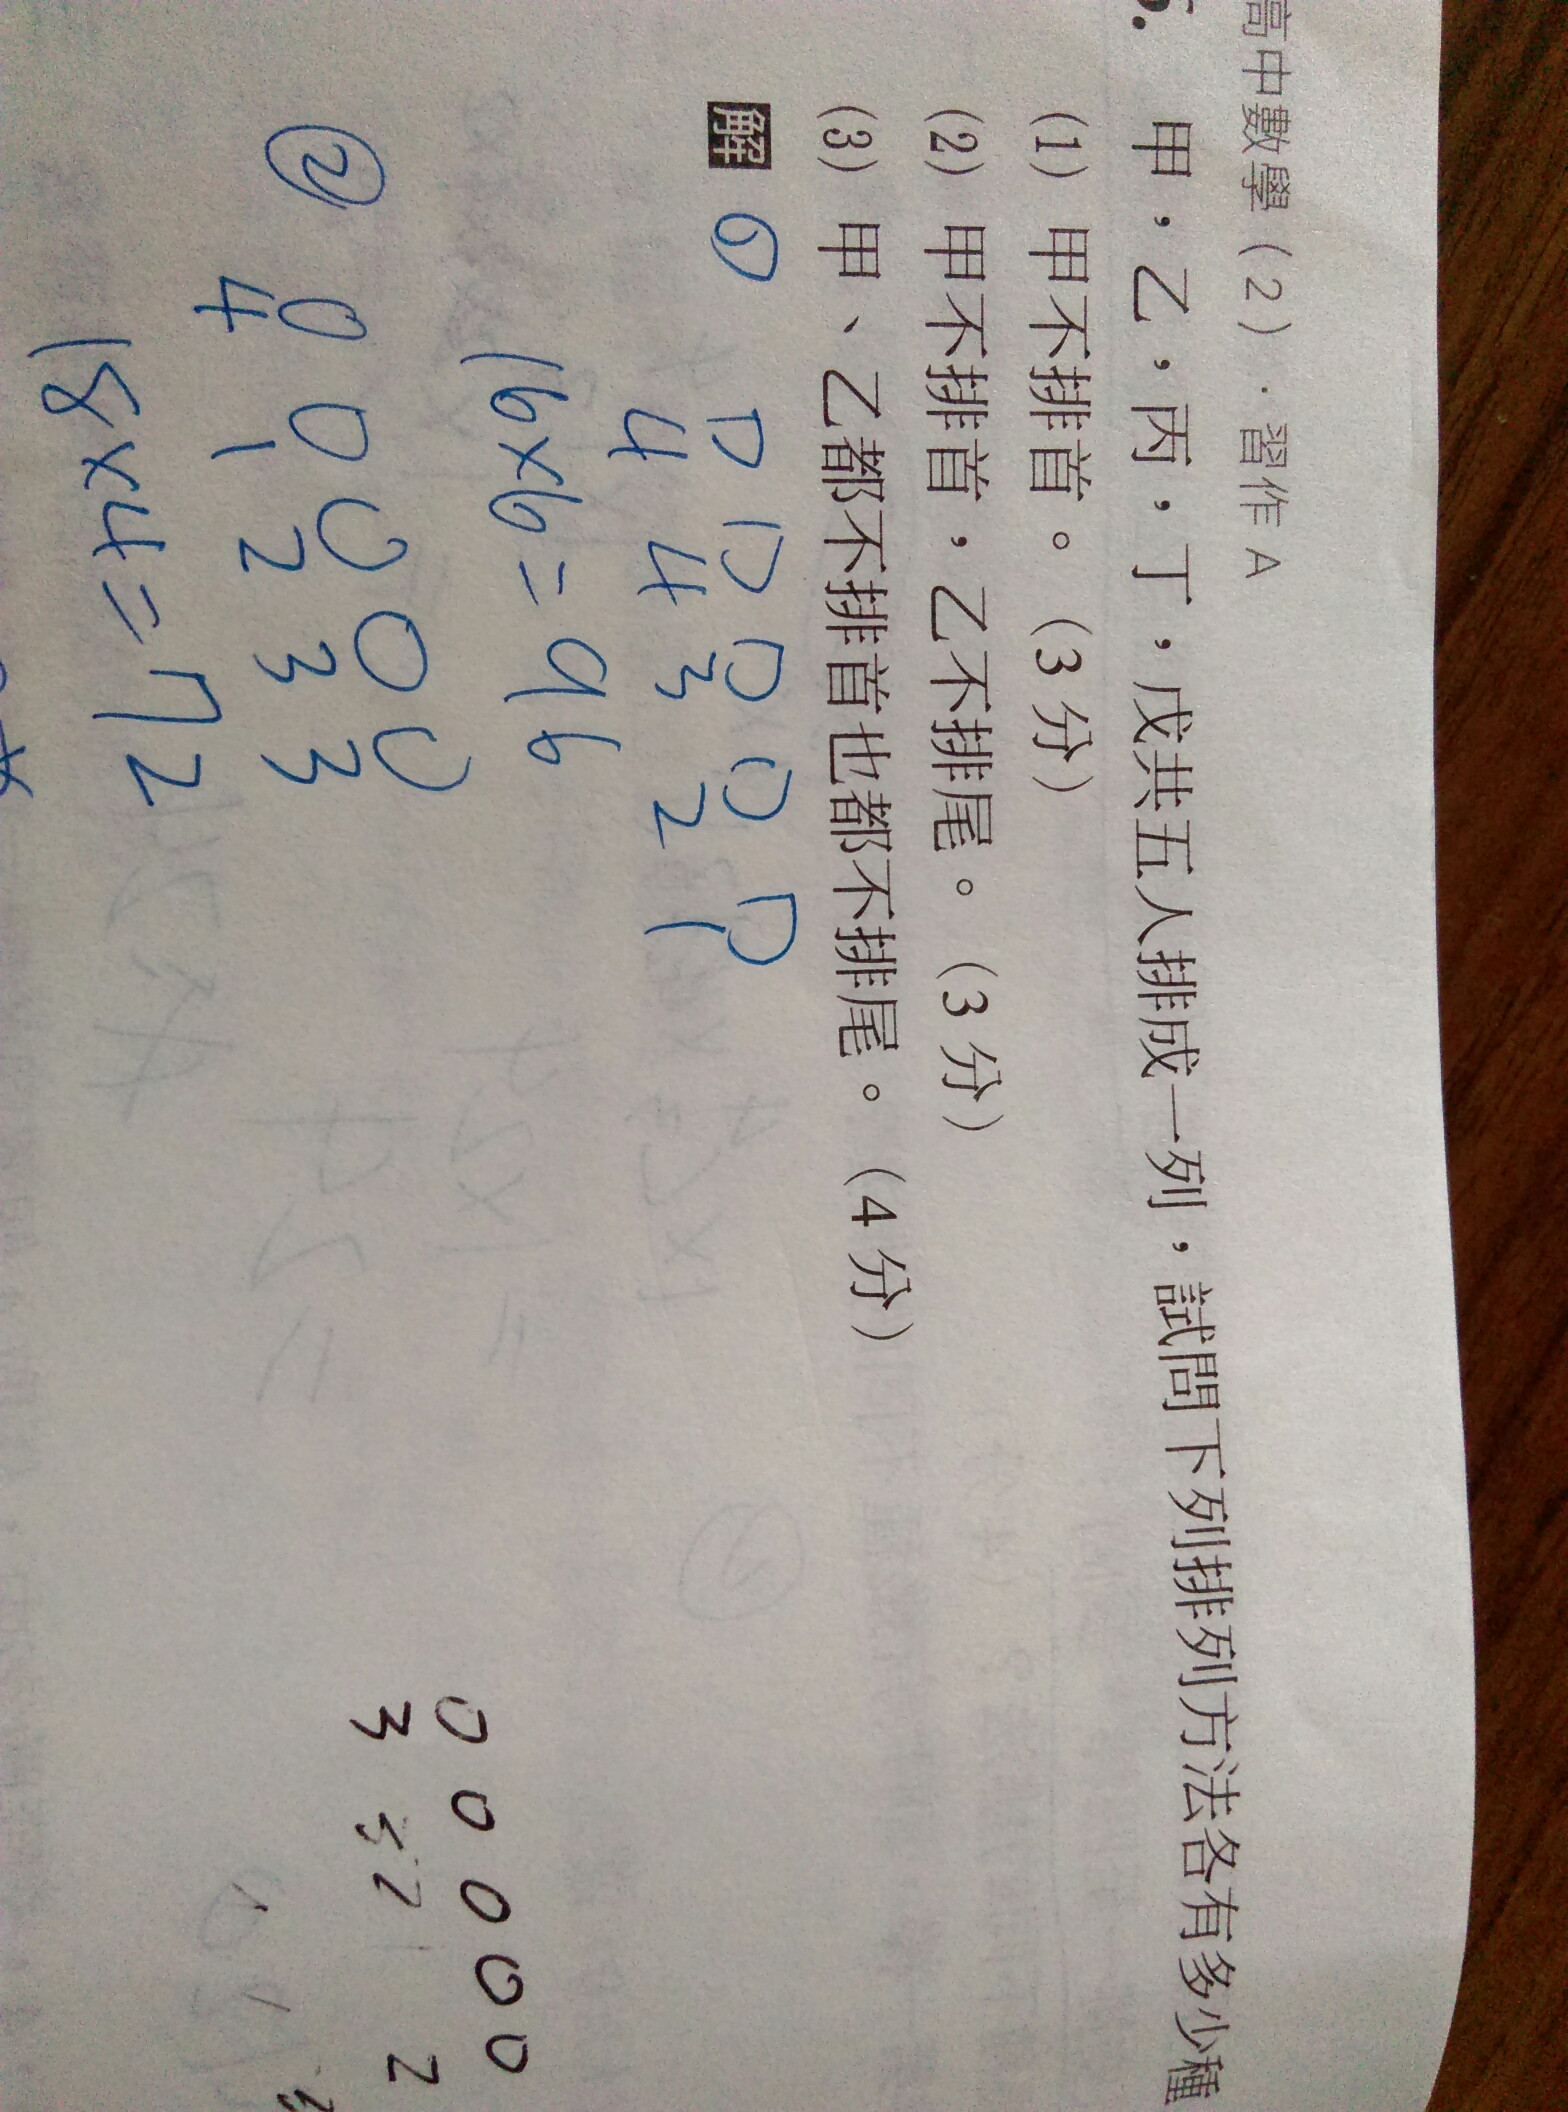 高中數學(2)·習作A
甲,乙,丙,丁,戊共五人排成一列,試問下列排列方法各有多少種
(1) 甲不排首。(3分)
(2) 甲不排首,乙不排尾。(3分)
(3) 甲、乙都不排首也都不排尾。(4分)
解
4 4 3 2 1
16×6=96
②
4 1 2 3 3
18×4=72
0 0 0 0 0
3 2 2